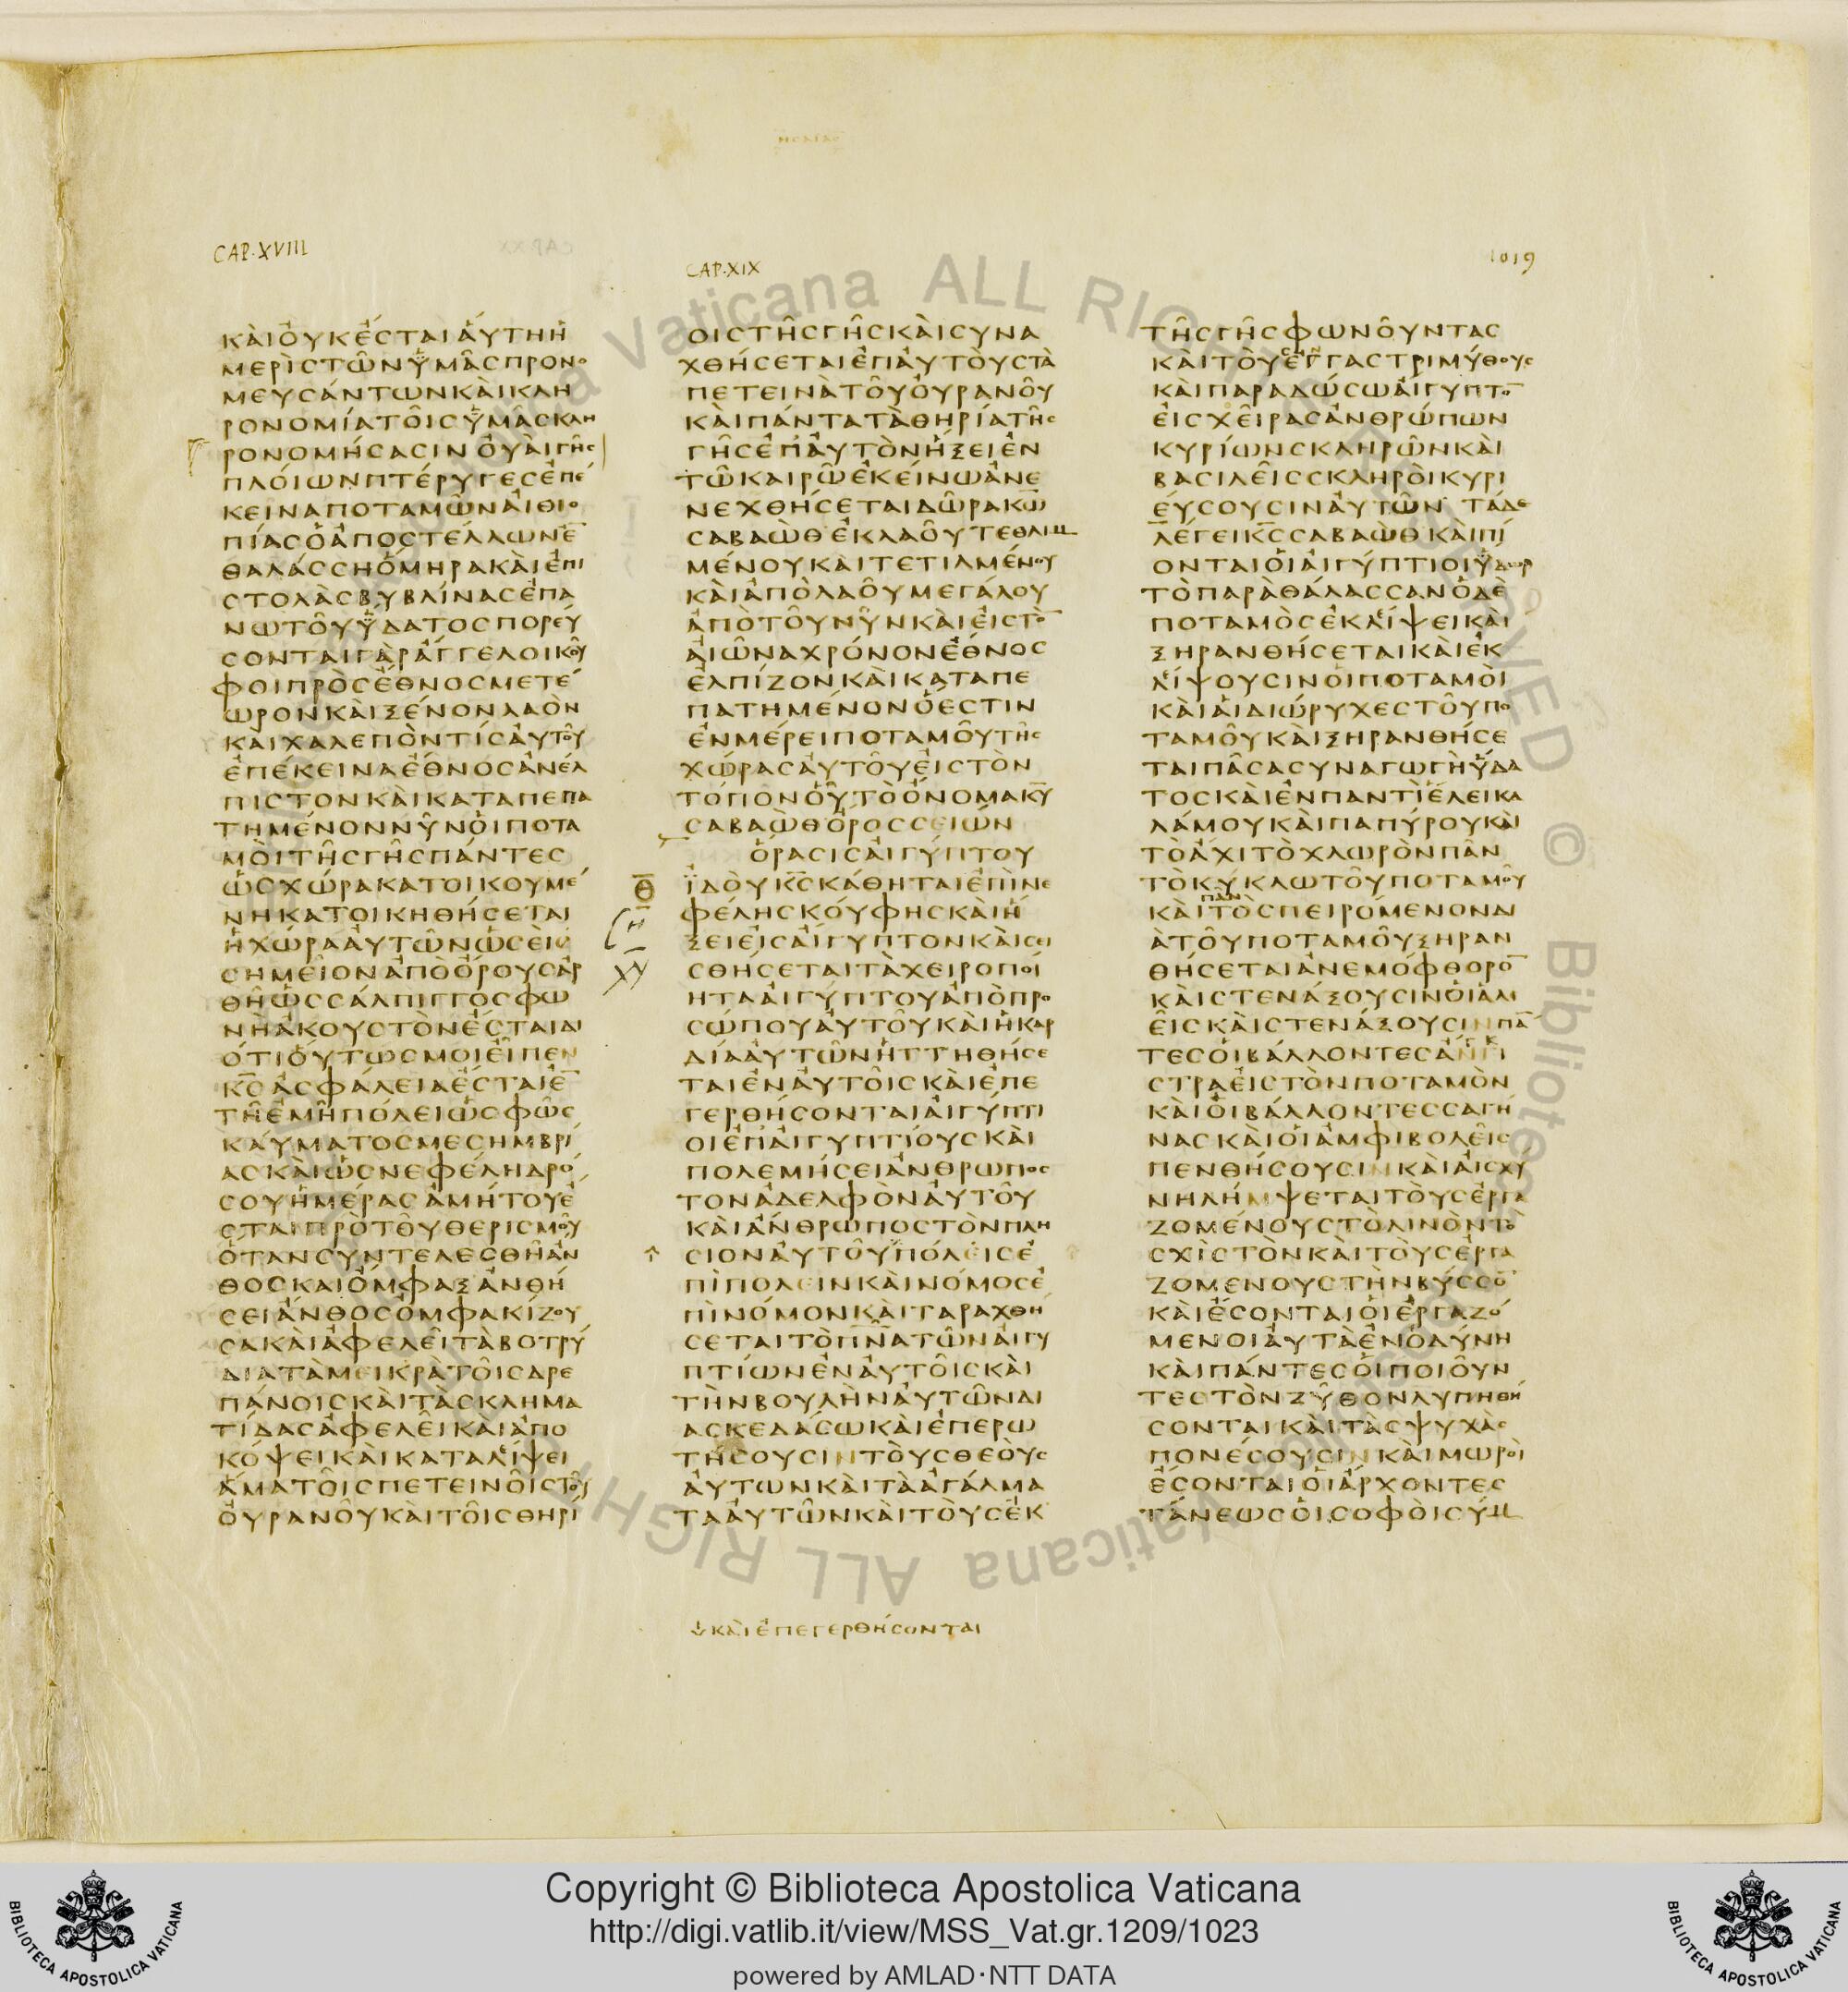 ΗϹΑΙΑϹ
CAP.XVIII
CAP.XIX
1019
ΚΑΙΟΥΚΕϹΤΑΙΑΥΤΗΗ
ΜΕΡΙϹΤΩΝΥΜΑϹΠΡΟΝΟ
ΜΕΥϹΑΝΤΩΝΚΑΙΚΛΗ
ΡΟΝΟΜΙΑΤΟΙϹΥΜΑϹΚΛΗ
ΡΟΝΟΜΗϹΑϹΙΝΟΥΑΙΓΗϹ
ΠΛΟΙΩΝΠΤΕΡΥΓΕϹΕΠΕ
ΚΕΙΝΑΠΟΤΑΜΩΝΑΙΘΙΟ
ΠΙΑϹΟΑΠΟϹΤΕΛΛΩΝΕ̅
ΘΑΛΑϹϹΗΟΜΗΡΑΚΑΙΕΠΙ
ϹΤΟΛΑϹΒΥΒΛΙΝΑϹΕΠΑ
ΝΩΤΟΥΥΔΑΤΟϹΠΟΡΕΥ
ϹΟΝΤΑΙΓΑΡΑΓΓΕΛΟΙΚΟΥ
ΦΟΙΠΡΟϹΕΘΝΟϹΜΕΤΕ
ΩΡΟΝΚΑΙΞΕΝΟΝΛΑΟΝ
ΚΑΙΧΑΛΕΠΟΝΤΙϹΑΥΤΟΥ
ΕΠΕΚΕΙΝΑΕΘΝΟϹΑΝΕΛ
ΠΙϹΤΟΝΚΑΙΚΑΤΑΠΕΠΑ
ΤΗΜΕΝΟΝΝΥΝΟΙΠΟΤΑ
ΜΟΙΤΗϹΓΗϹΠΑΝΤΕϹ
ΩϹΧΩΡΑΚΑΤΟΙΚΟΥΜΕ
ΝΗΚΑΤΟΙΚΗΘΗϹΕΤΑΙ
ΗΧΩΡΑΑΥΤΩΝΩϹΕΙϹ
ϹΗΜΕΙΟΝΑΠΟΟΡΟΥϹΑΡ
ΘΗΩϹϹΑΛΠΙΓΓΟϹΦΩ
ΝΗΑΚΟΥϹΤΟΝΕϹΤΑΙΔΙ
ΟΤΙΟΥΤΩϹΜΟΙΕΙΠΕΝ
Κ̅Ϲ̅ΑϹΦΑΛΕΙΑΕϹΤΑΙΕ̅
ΤΗΕΜΗΠΟΛΕΙΩϹΦΩϹ
ΚΑΥΜΑΤΟϹΜΕϹΗΜΒΡΙ
ΑϹΚΑΙΩϹΝΕΦΕΛΗΔΡΟ
ϹΟΥΗΜΕΡΑϹΑΜΗΤΟΥΕ
ϹΤΑΙΠΡΟΤΟΥΘΕΡΙϹΜΟΥ
ΟΤΑΝϹΥΝΤΕΛΕϹΘΗΑΝ
ΘΟϹΚΑΙΟΜΦΑΞΑΝΘΗ
ϹΕΙΑΝΘΟϹΟΜΦΑΚΙΖΟΥ
ϹΑΚΑΙΑΦΕΛΕΙΤΑΒΟΤΡΥ
ΔΙΑΤΑΜΕΙΚΡΑΤΟΙϹΔΡΕ
ΠΑΝΟΙϹΚΑΙΤΑϹΚΛΗΜΑ
ΤΙΔΑϹΑΦΕΛΕΙΚΑΙΑΠΟ
ΚΟΨΕΙΚΑΙΚΑΤΑΛΙΨΕΙ
ΑΜΑΤΟΙϹΠΕΤΕΙΝΟΙϹΤΟΥ
ΟΥΡΑΝΟΥΚΑΙΤΟΙϹΘΗΡΙ
ΟΙϹΤΗϹΓΗϹΚΑΙϹΥΝΑ
ΧΘΗϹΕΤΑΙΕΠΑΥΤΟΥϹΤΑ
ΠΕΤΕΙΝΑΤΟΥΟΥΡΑΝΟΥ
ΚΑΙΠΑΝΤΑΤΑΘΗΡΙΑΤΗϹ
ΓΗϹΕΠΑΥΤΟΝΗΞΕΙΕΝ
ΤΩΚΑΙΡΩΕΚΕΙΝΩΑΝΕ
ΝΕΧΘΗϹΕΤΑΙΔΩΡΑΚ̅Ω̅
ϹΑΒΑΩΘΕΚΛΑΟΥΤΕΘΛΙΜ
ΜΕΝΟΥΚΑΙΤΕΤΙΛΜΕΝΟΥ
ΚΑΙΑΠΟΛΑΟΥΜΕΓΑΛΟΥ
ΑΠΟΤΟΥΝΥΝΚΑΙΕΙϹΤΟ̅
ΑΙΩΝΑΧΡΟΝΟΝΕΘΝΟϹ
ΕΛΠΙΖΟΝΚΑΙΚΑΤΑΠΕ
ΠΑΤΗΜΕΝΟΝΟΕϹΤΙΝ
ΕΝΜΕΡΕΙΠΟΤΑΜΟΥΤΗϹ
ΧΩΡΑϹΑΥΤΟΥΕΙϹΤΟΝ
ΤΟΠΟΝΟΥΤΟΟΝΟΜΑΚ̅Υ̅
ϹΑΒΑΩΘΟΡΟϹϹΕΙΩΝ
ΟΡΑϹΙϹΑΙΓΥΠΤΟΥ
Θ̅ ΙΔΟΥΚ̅Ϲ̅ΚΑΘΗΤΑΙΕΠΙΝΕ
ΦΕΛΗϹΚΟΥΦΗϹΚΑΙΗ
ΞΕΙΕΙϹΑΙΓΥΠΤΟΝΚΑΙϹΕΙ
ϹΘΗϹΕΤΑΙΤΑΧΕΙΡΟΠΟΙ
ΗΤΑΑΙΓΥΠΤΟΥΑΠΟΠΡΟ
ϹΩΠΟΥΑΥΤΟΥΚΑΙΗΚΑΡ
ΔΙΑΑΥΤΩΝΗΤΤΗΘΗϹΕ
ΤΑΙΕΝΑΥΤΟΙϹΚΑΙΕΠΕ
ΓΕΡΘΗϹΟΝΤΑΙΑΙΓΥΠΤΙ
ΟΙΕΠΑΙΓΥΠΤΙΟΥϹΚΑΙ
ΠΟΛΕΜΗϹΕΙΑΝΘΡΩΠΟϹ
ΤΟΝΑΔΕΛΦΟΝΑΥΤΟΥ
ΚΑΙΑΝΘΡΩΠΟϹΤΟΝΠΛΗ
ϹΙΟΝΑΥΤΟΥΠΟΛΕΙϹΕ
ΠΙΠΟΛΕΙΝΚΑΙΝΟΜΟϹΕ
ΠΙΝΟΜΟΝΚΑΙΤΑΡΑΧΘΗ
ϹΕΤΑΙΤΟΠ̅Ν̅Α̅ΤΩΝΑΙΓΥ
ΠΤΙΩΝΕΝΑΥΤΟΙϹΚΑΙ
ΤΗΝΒΟΥΛΗΝΑΥΤΩΝΔΙ
ΑϹΚΕΔΑϹΩΚΑΙΕΠΕΡΩ
ΤΗϹΟΥϹΙΝΤΟΥϹΘΕΟΥϹ
ΑΥΤΩΝΚΑΙΤΑΑΓΑΛΜΑ
ΤΑΑΥΤΩΝΚΑΙΤΟΥϹΕΚ
ΚΑΙΕΠΕΓΕΡΘΗϹΟΝΤΑΙ
ΤΗϹΓΗϹΦΩΝΟΥΝΤΑϹ
ΚΑΙΤΟΥϹΕΓΓΑϹΤΡΙΜΥΘΟΥϹ
ΚΑΙΠΑΡΑΔΩϹΩΑΙΓΥΠΤΟ̅
ΕΙϹΧΕΙΡΑϹΑΝΘΡΩΠΩΝ
ΚΥΡΙΩΝϹΚΛΗΡΩΝΚΑΙ
ΒΑϹΙΛΕΙϹϹΚΛΗΡΟΙΚΥΡΙ
ΕΥϹΟΥϹΙΝΑΥΤΩΝ ΤΑΔΕ
ΛΕΓΕΙΚ̅Ϲ̅ϹΑΒΑΩΘΚΑΙΠΙ
ΟΝΤΑΙΟΙΑΙΓΥΠΤΙΟΙΥΔΩΡ
ΤΟΠΑΡΑΘΑΛΑϹϹΑΝΟΔΕ
ΠΟΤΑΜΟϹΕΚΛΙΨΕΙΚΑΙ
ΞΗΡΑΝΘΗϹΕΤΑΙΚΑΙΕΚ
ΛΙΨΟΥϹΙΝΟΙΠΟΤΑΜΟΙ
ΚΑΙΑΙΔΙΩΡΥΧΕϹΤΟΥΠΟ
ΤΑΜΟΥΚΑΙΞΗΡΑΝΘΗϹΕ
ΤΑΙΠΑϹΑϹΥΝΑΓΩΓΗΥΔΑ
ΤΟϹΚΑΙΕΝΠΑΝΤΙΕΛΕΙΚΑ
ΛΑΜΟΥΚΑΙΠΑΠΥΡΟΥΚΑΙ
ΤΟΑΧΙΤΟΧΛΩΡΟΝΠΑΝ
ΤΟΚΥΚΛΩΤΟΥΠΟΤΑΜΟΥ
ΠΑΝ
ΚΑΙΤΟϹΠΕΙΡΟΜΕΝΟΝΔΙ
ΑΤΟΥΠΟΤΑΜΟΥΞΗΡΑΝ
ΘΗϹΕΤΑΙΑΝΕΜΟΦΘΟΡΟ̅
ΚΑΙϹΤΕΝΑΞΟΥϹΙΝΟΙΑΛΙ
ΕΙϹΚΑΙϹΤΕΝΑΞΟΥϹΙΝΠΑ̅
ΤΕϹΟΙΒΑΛΛΟΝΤΕϹΑΓΚΙ
ϹΤΡΑΕΙϹΤΟΝΠΟΤΑΜΟΝ
ΚΑΙΟΙΒΑΛΛΟΝΤΕϹϹΑΓΗ
ΝΑϹΚΑΙΟΙΑΜΦΙΒΟΛΕΙϹ
ΠΕΝΘΗϹΟΥϹΙΝΚΑΙΑΙϹΧΥ
ΝΗΛΗΜΨΕΤΑΙΤΟΥϹΕΡΓΑ
ΖΟΜΕΝΟΥϹΤΟΛΙΝΟΝΤΟ
ϹΧΙϹΤΟΝΚΑΙΤΟΥϹΕΡΓΑ
ΖΟΜΕΝΟΥϹΤΗΝΒΥϹϹΟ̅
ΚΑΙΕϹΟΝΤΑΙΟΙΕΡΓΑΖΟ
ΜΕΝΟΙΑΥΤΑΕΝΟΔΥΝΗ
ΚΑΙΠΑΝΤΕϹΟΙΠΟΙΟΥΝ
ΤΕϹΤΟΝΖΥΘΟΝΛΥΠΗΘΗ
ϹΟΝΤΑΙΚΑΙΤΑϹΨΥΧΑϹ
ΠΟΝΕϹΟΥϹΙΝΚΑΙΜΩΡΟΙ
ΕϹΟΝΤΑΙΟΙΑΡΧΟΝΤΕϹ
ΤΑΝΕΩϹΟΙϹΟΦΟΙϹΥΜ
Copyright © Biblioteca Apostolica Vaticana
http://digi.vatlib.it/view/MSS_Vat.gr.1209/1023
powered by AMLAD·NTT DATA